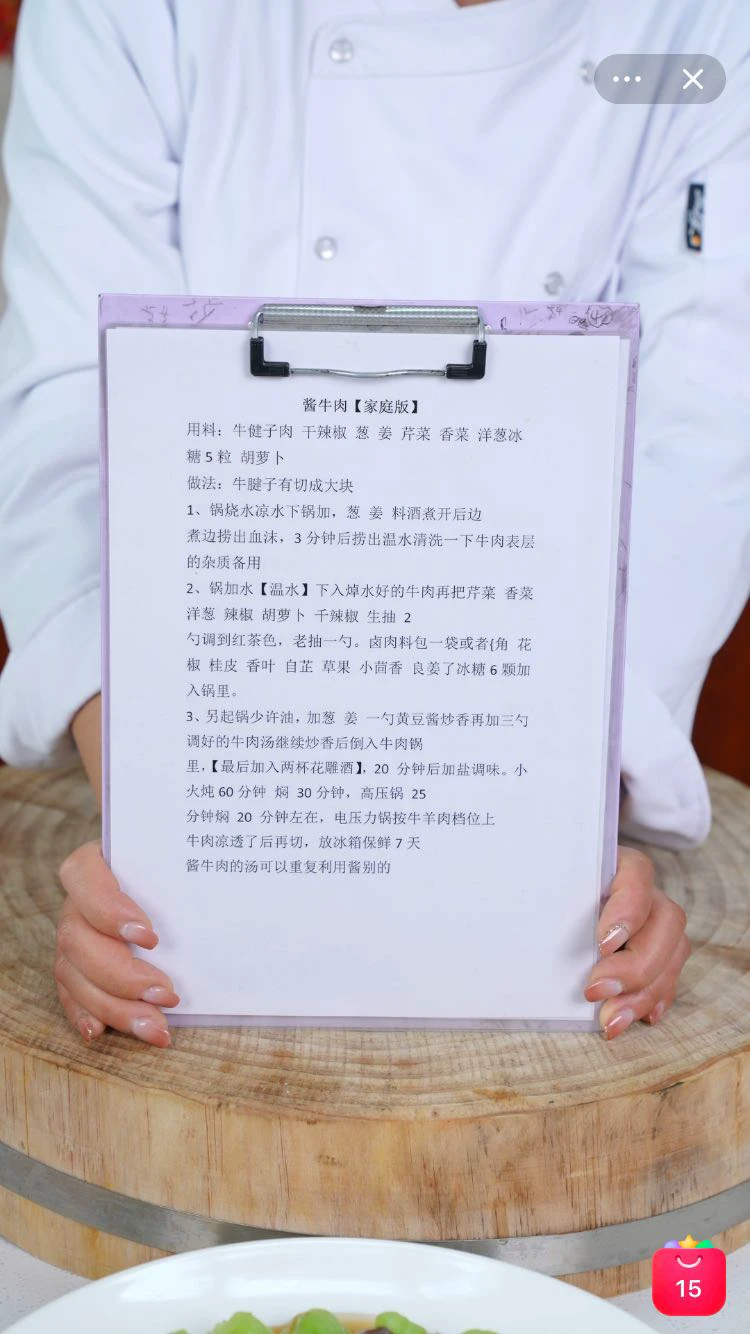 酱牛肉【家庭版】
用料：牛健子肉 干辣椒 葱 姜 芹菜 香菜 洋葱冰
糖 5 粒 胡萝卜
做法：牛腱子有切成大块
1、锅烧水凉水下锅加，葱 姜 料酒煮开后边
煮边捞出血沫，3 分钟后捞出温水清洗一下牛肉表层
的杂质备用
2、锅加水【温水】下入焯水好的牛肉再把芹菜 香菜
洋葱 辣椒 胡萝卜 千辣椒 生抽 2
勺调到红茶色，老抽一勺。卤肉料包一袋或者{角 花
椒 桂皮 香叶 自芷 草果 小茴香 良姜了冰糖 6 颗加
入锅里。
3、另起锅少许油，加葱 姜 一勺黄豆酱炒香再加三勺
调好的牛肉汤继续炒香后倒入牛肉锅
里，【最后加入两杯花雕酒】，20 分钟后加盐调味。小
火炖 60 分钟 焖 30 分钟，高压锅 25
分钟焖 20 分钟左在，电压力锅按牛羊肉档位上
牛肉凉透了后再切，放冰箱保鲜 7 天
酱牛肉的汤可以重复利用酱别的
15